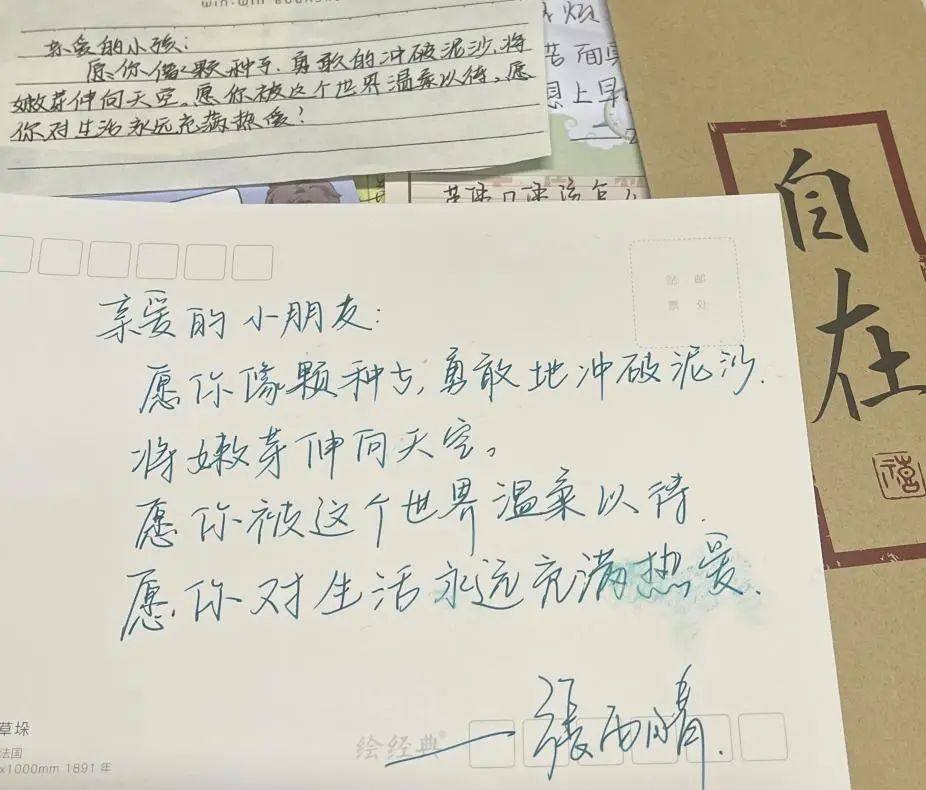 WIN-WIN
亲爱的小孩:
愿你像颗种子,勇敢的冲破泥沙,将
嫩芽伸向天空。愿你被这个世界温柔以待,愿
你对生活永远充满热爱!
想上早
自在
贴 邮
票 处
亲爱的小朋友:
愿你像颗种子,勇敢地冲破泥沙,
将嫩芽伸向天空。
愿你被这个世界温柔以待,
愿你对生活永远充满热爱.
——張雨晴.
草垛
法国
x1000mm 1891 年
绘经典